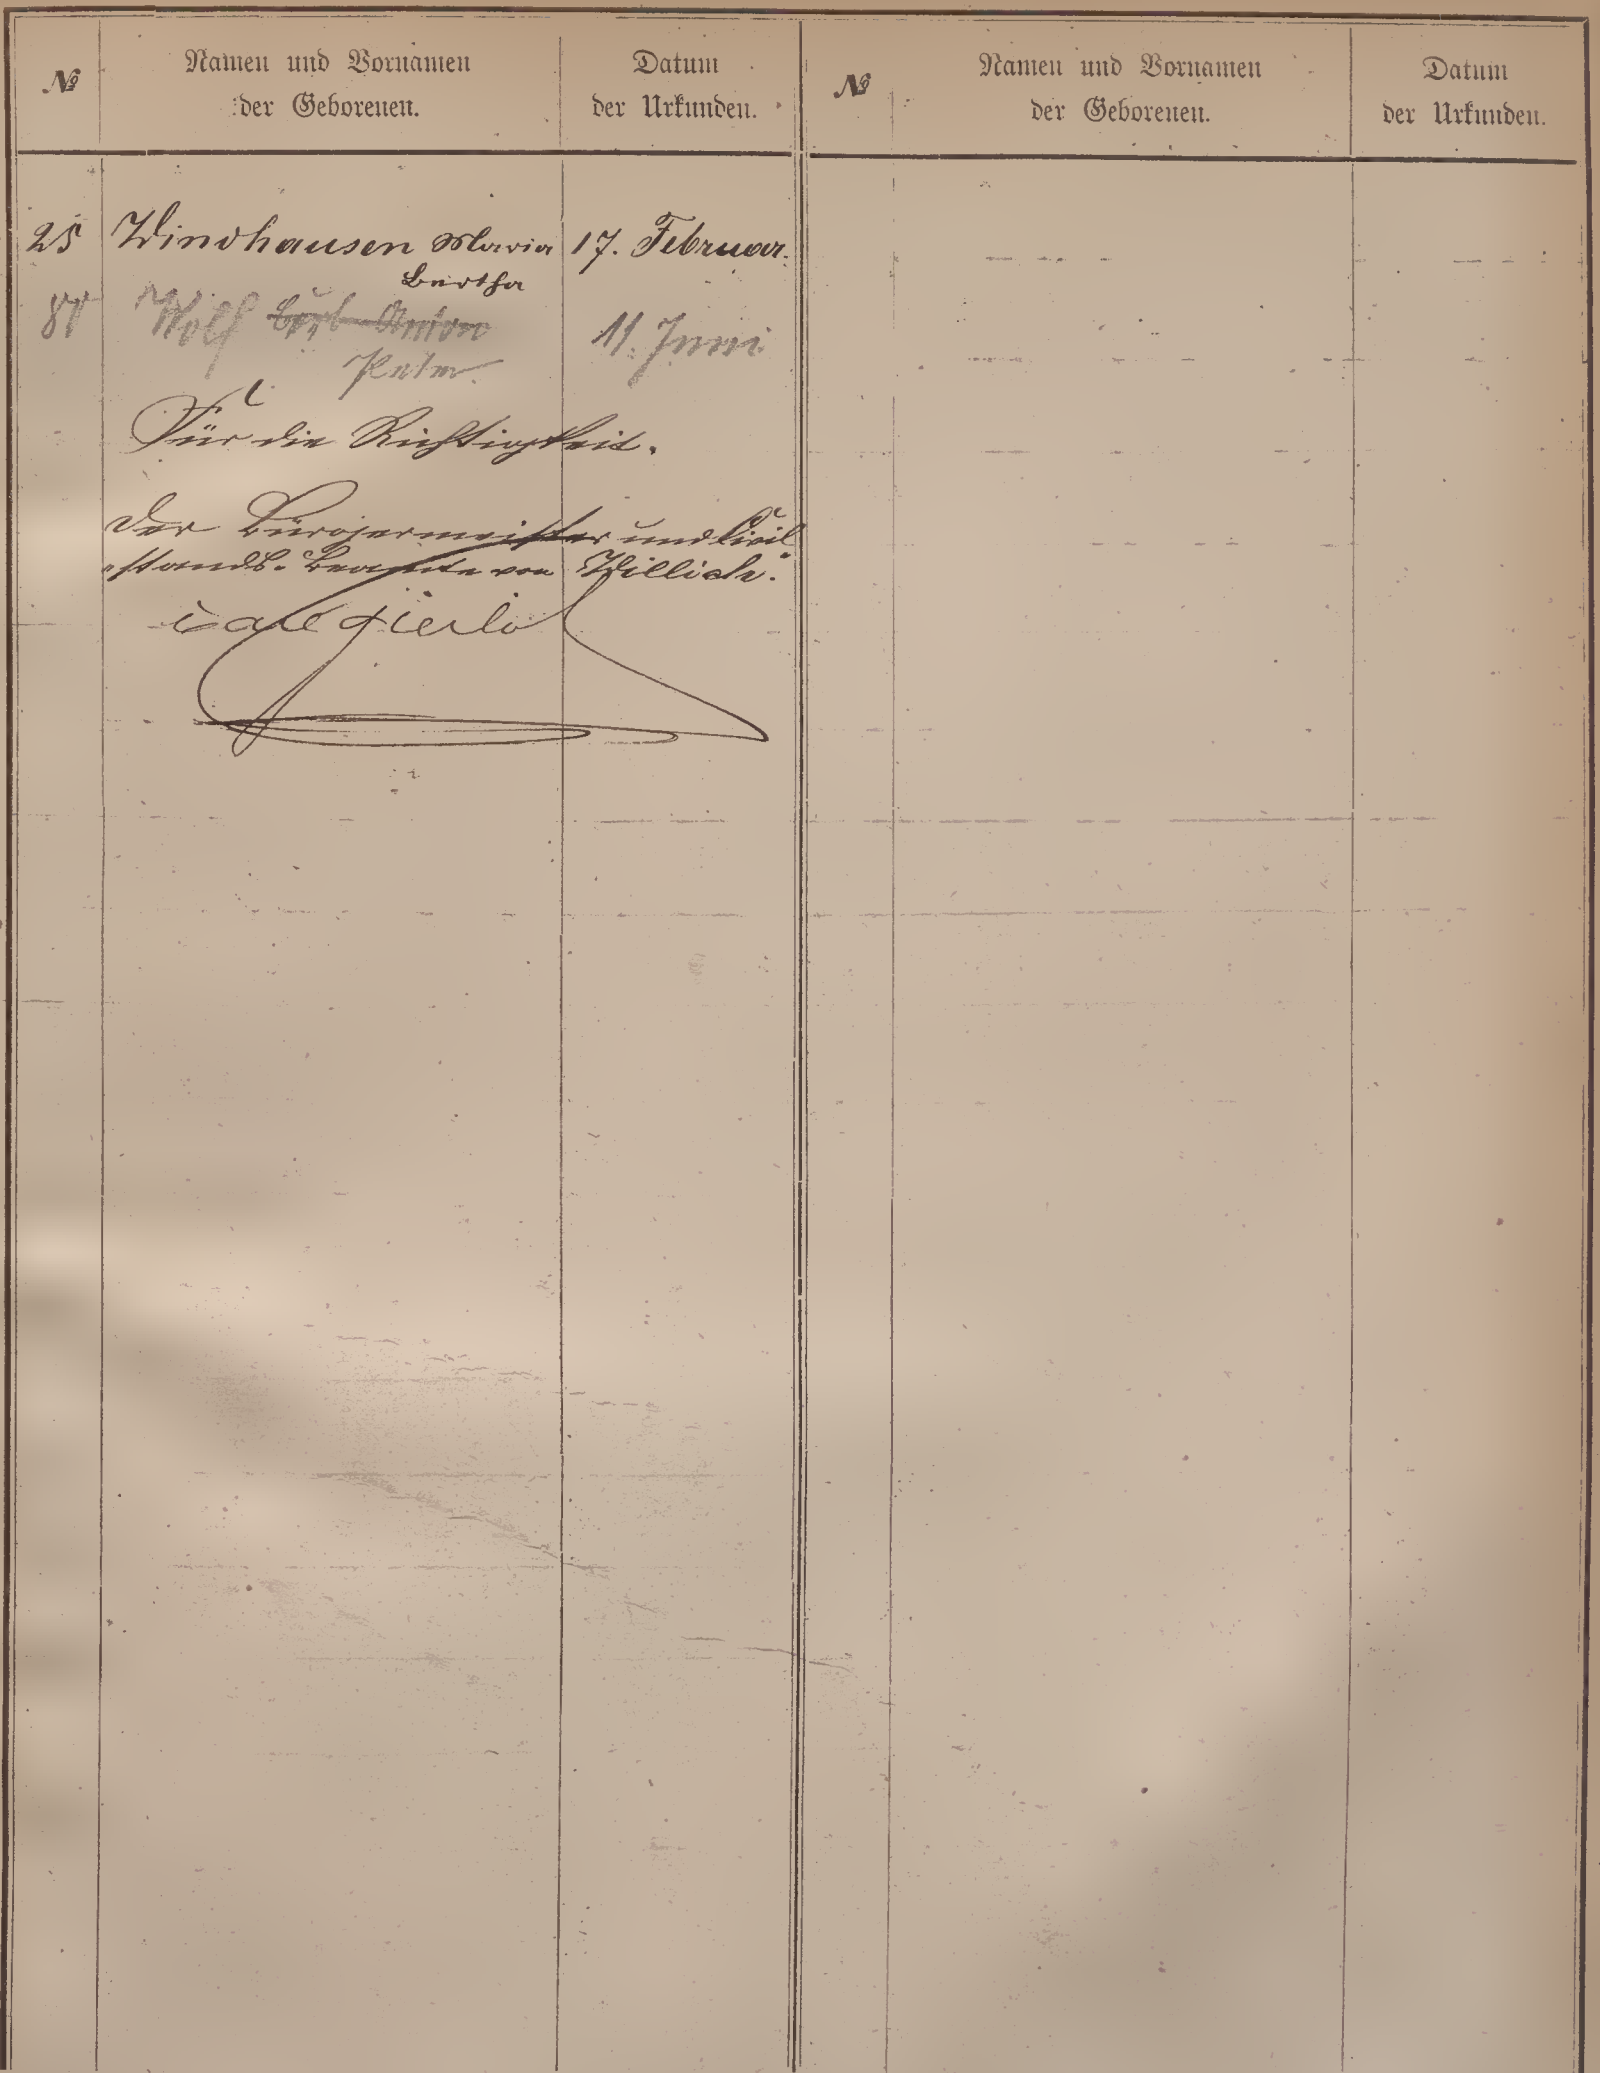 № Namen und Vornamen der Geborenen. Datum der Urkunden. № Namen und Vornamen der Geborenen. Datum der Urkunden.
25 Windhausen Maria 17. Februar.
Bertha
Wolf Anton 11. Juni
Für die Richtigkeit.
Der Bürgermeister und Civil
stands-Beamte von Willich.